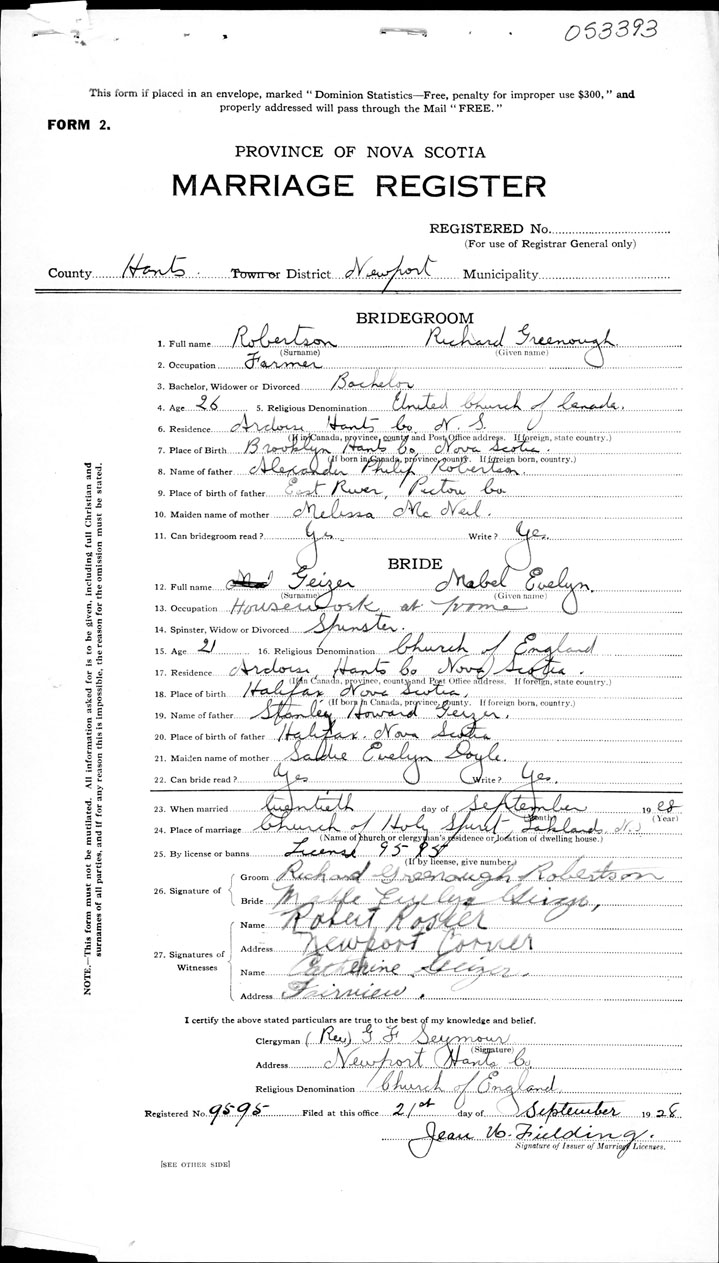 053393
This form if placed in an envelope, marked "Dominion Statistics—Free, penalty for improper use $300," and
properly addressed will pass through the Mail "FREE."
FORM 2.
PROVINCE OF NOVA SCOTIA
MARRIAGE REGISTER
REGISTERED No.
(For use of Registrar General only)
County Hants. Town or District Newport Municipality
BRIDEGROOM
1. Full name Robertson Richard Greenough.
(Surname) (Given name)
2. Occupation Farmer
3. Bachelor, Widower or Divorced Bachelor
4. Age 26 5. Religious Denomination United Church of Canada.
6. Residence Ardoise Hants Co. N. S.
(If in Canada, province, county and Post Office address. If foreign, state country.)
7. Place of Birth Brooklyn Hants Co, Nova Scotia.
(If born in Canada, province, county. If foreign born, country.)
8. Name of father Alexander Philip Robertson.
9. Place of birth of father East River, Pictou Co
10. Maiden name of mother Melissa Mc Neil.
11. Can bridegroom read? Yes Write? Yes.
BRIDE
12. Full name Geizer Mabel Evelyn.
(Surname) (Given name)
13. Occupation Housework at home
14. Spinster, Widow or Divorced Spinster.
15. Age 21 16. Religious Denomination Church of England
17. Residence Ardoise Hants Co Nova Scotia.
(If in Canada, province, county and Post Office address. If foreign, state country.)
18. Place of birth Halifax Nova Scotia,
(If born in Canada, province, county. If foreign born, country.)
19. Name of father Stanley Howard Geizer.
20. Place of birth of father Halifax. Nova Scotia
21. Maiden name of mother Saddie Evelyn Doyle.
22. Can bride read? Yes Write? Yes.
23. When married twentieth day of September 1928
(Month) (Year)
24. Place of marriage Church of Holy Spirit, Lakelands N.S
(Name of church or clergyman's residence or location of dwelling house.)
25. By license or banns License 9595
(If by license, give number.)
26. Signature of Groom Richard Greenough Robertson
Bride Evelyn Geizer,
27. Signatures of Witnesses Name Robert
Address Newport Corner
Name Catherine Geizer.
Address Fairview.
I certify the above stated particulars are true to the best of my knowledge and belief.
Clergyman (Rev) G F Seymour
(Signature)
Address Newport Hants Co.
Religious Denomination Church of England
Registered No. 9595 Filed at this office 21st day of September 1928
Jean W. Fielding.
Signature of Issuer of Marriage Licenses.
[SEE OTHER SIDE]
NOTE.—This form must not be mutilated. All information asked for is to be given, including full Christian and
surnames of all parties, and if for any reason this is impossible, the reason for the omission must be stated.